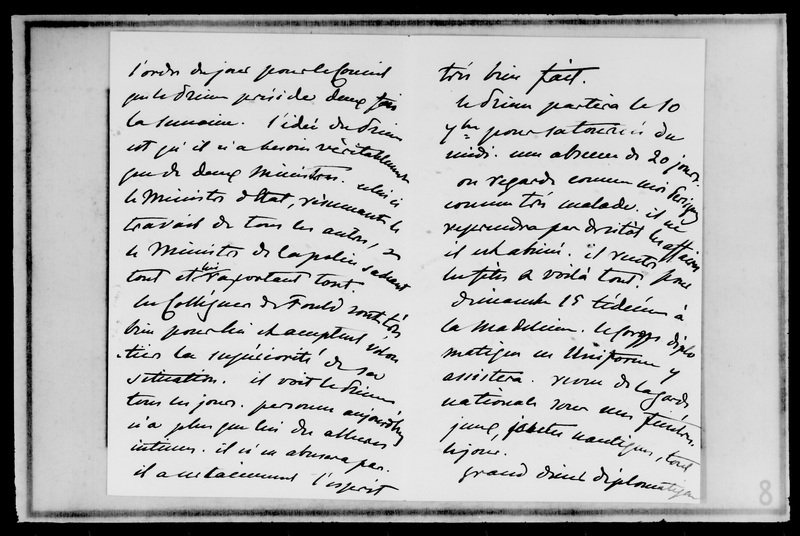 l'ordre du jour pour le Conseil
que le Prince préside deux fois
la semaine. l'idée du Prince
est qu'il n'a besoin véritablement
que de deux Ministres. celui ci
le Ministre d'Etat, résumant le
travail de tous les autres, et
le Ministre de la police sachant
tout et lui rapportant tout.
les Collègues de Fould sont très
bien pour lui et acceptent volon
tiers la supériorité de sa
situation. il voit le Prince
tous les jours. personne aujourd'hui
n'a plus que lui des allures
intimes. il n'en abusera pas.
il a l'esprit
très bien fait.
le Prince partira le 10
7bre pour sa tournée du
midi. une absence de 20 jours.
on regarde comme
comme très malade. il ne
reprendra pas de sitôt les affaires
il est abimé. il reste pour
les fêtes et voilà tout.
dimanche 15 té déum à
la Madeleine. le Corps diplo
matique en Uniforme y
assistera. revue de la garde
nationale sous mes fenêtres.
jeux, joutes nautiques, tout
le jour.
grand diner diplomatique
8